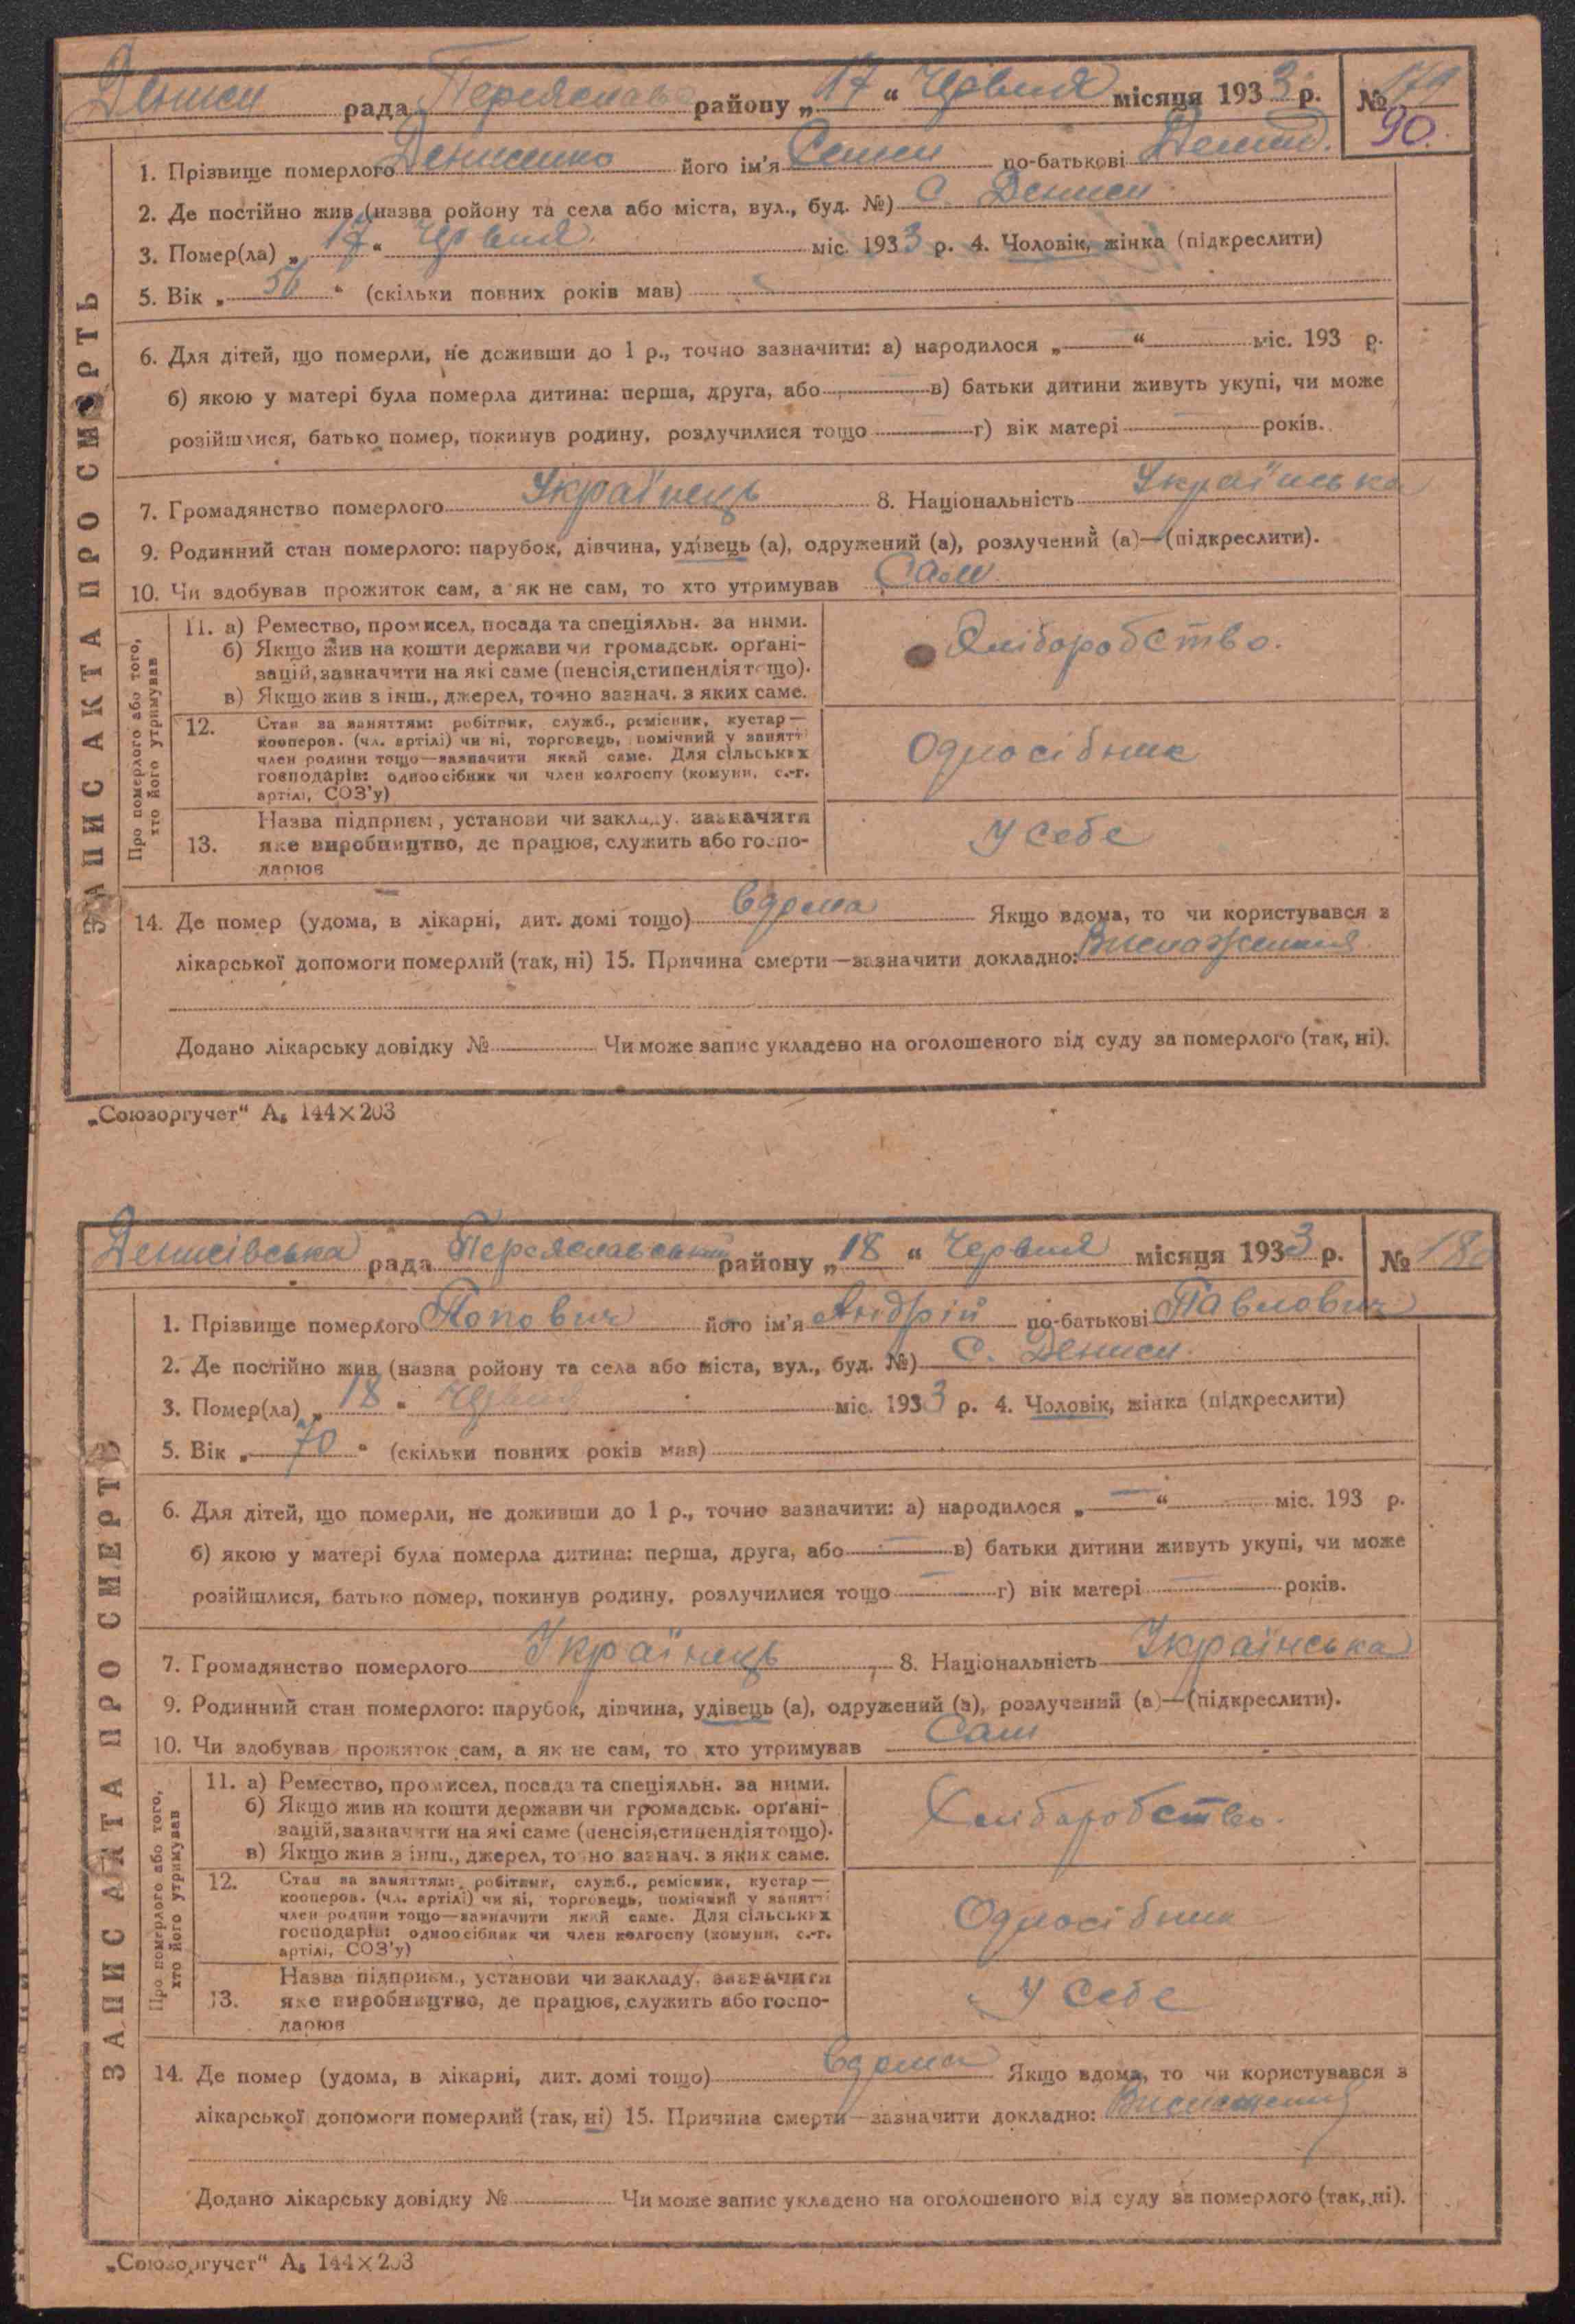 Дениси рада Переяслав району „17“ Червня місяця 1933 р. № 179
90.
ЗАПИС АКТА ПРО СМЕРТЬ
1. Прізвище померлого Денисенко його ім'я Семен по-батькові Демид.
2. Де постійно жив (назва ройону та села або міста, вул., буд. №) С. Дениси
3. Помер(ла) „17“ Червня міс. 1933 р. 4. Чоловік, жінка (підкреслити)
5. Вік „56“ (скільки повних років мав)
6. Для дітей, що померли, не доживши до 1 р., точно зазначити: а) народилося „—“ міс. 193 р.
б) якою у матері була померла дитина: перша, друга, або — в) батьки дитини живуть укупі, чи може
розійшлися, батько помер, покинув родину, розлучилися тощо — г) вік матері — років.
7. Громадянство померлого Українець 8. Національність Українська
9. Родинний стан померлого: парубок, дівчина, удівець (а), одружений (а), розлучений (а)—(підкреслити).
10. Чи здобував прожиток сам, а як не сам, то хто утримував Сам
Про померлого або того, хто його утримував
11. а) Ремество, промисел, посада та спеціяльн. за ними.
б) Якщо жив на кошти держави чи громадськ. орґані-
зацій, зазначити на які саме (пенсія, стипендія тощо).
в) Якщо жив з інш., джерел, точно зазнач. з яких саме.
Хліборобство.
12. Стан за заняттям: робітник, служб., ремісник, кустар—
кооперов. (чл. артілі) чи ні, торговець, помічний у занятті
член родини тощо—зазначити який саме. Для сільських
господарів: одноосібник чи член колгоспу (комуни, с.-г.
артілі, СОЗ'у)
Одноосібник
13. Назва підприєм., установи чи закладу, зазначити
яке виробництво, де працює, служить або госпо-
дарює
У себе
14. Де помер (удома, в лікарні, дит. домі тощо) вдома Якщо вдома, то чи користувався з
лікарської допомоги померлий (так, ні) 15. Причина смерти—зазначити докладно: Виснаження
Додано лікарську довідку № Чи може запис укладено на оголошеного від суду за померлого (так, ні).
„Союзоргучет“ А₅ 144×203
Денисівська рада Переяславський району „18“ Червня місяця 1933 р. № 180
ЗАПИС АКТА ПРО СМЕРТЬ
1. Прізвище померлого Попович його ім'я Андрій по-батькові Павлович
2. Де постійно жив (назва ройону та села або міста, вул., буд. №) С. Дениси
3. Помер(ла) „18“ Червня міс. 1933 р. 4. Чоловік, жінка (підкреслити)
5. Вік „70“ (скільки повних років мав)
6. Для дітей, що померли, не доживши до 1 р., точно зазначити: а) народилося „—“ міс. 193 р.
б) якою у матері була померла дитина: перша, друга, або — в) батьки дитини живуть укупі, чи може
розійшлися, батько помер, покинув родину, розлучилися тощо — г) вік матері — років.
7. Громадянство померлого Українець 8. Національність Українська
9. Родинний стан померлого: парубок, дівчина, удівець (а), одружений (а), розлучений (а)—(підкреслити).
10. Чи здобував прожиток сам, а як не сам, то хто утримував Сам
Про померлого або того, хто його утримував
11. а) Ремество, промисел, посада та спеціяльн. за ними.
б) Якщо жив на кошти держави чи громадськ. орґані-
зацій, зазначити на які саме (пенсія, стипендія тощо).
в) Якщо жив з інш., джерел, точно зазнач. з яких саме.
Хліборобство.
12. Стан за заняттям: робітник, служб., ремісник, кустар—
кооперов. (чл. артілі) чи ні, торговець, помічний у занятті
член родини тощо—зазначити який саме. Для сільських
господарів: одноосібник чи член колгоспу (комуни, с.-г.
артілі, СОЗ'у)
Одноосібник
13. Назва підприєм., установи чи закладу, зазначити
яке виробництво, де працює, служить або госпо-
дарює
У себе
14. Де помер (удома, в лікарні, дит. домі тощо) вдома Якщо вдома, то чи користувався з
лікарської допомоги померлий (так, ні) 15. Причина смерти—зазначити докладно: Виснаження
Додано лікарську довідку № Чи може запис укладено на оголошеного від суду за померлого (так, ні).
„Союзоргучет“ А₅ 144×203